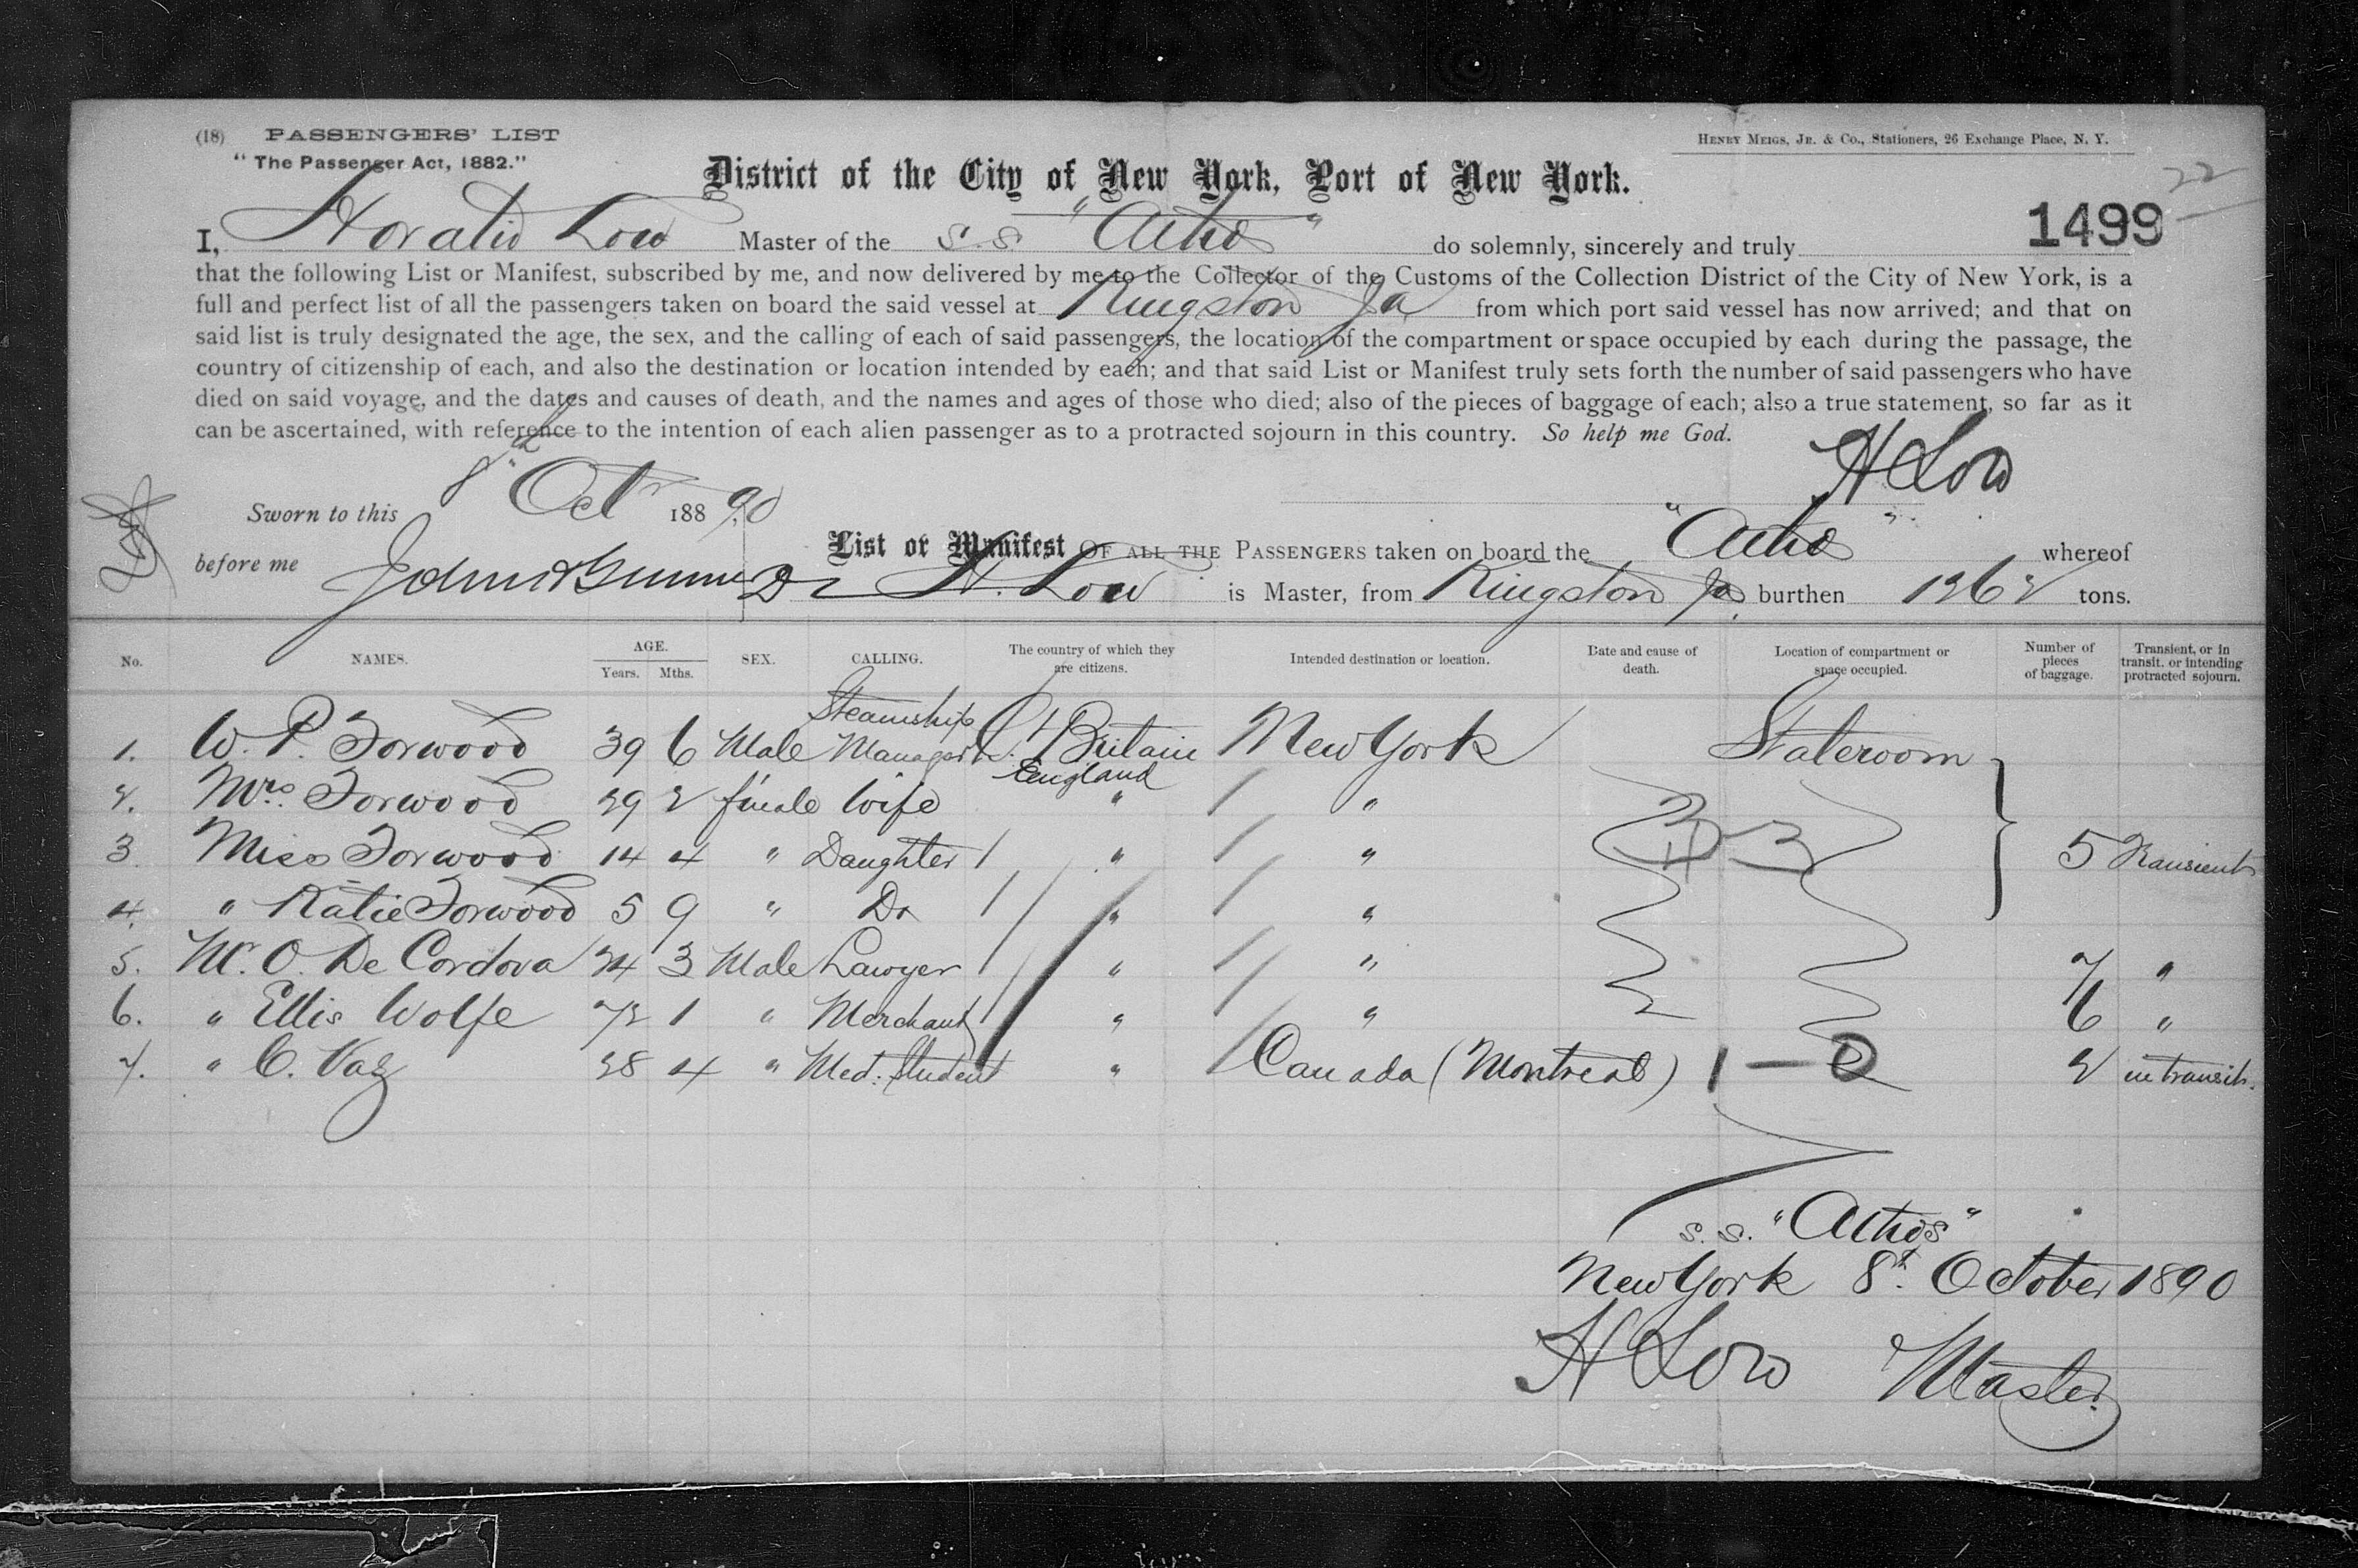 (18) PASSENGERS' LIST
"The Passenger Act, 1882."
HENRY MEIGS, JR. & CO., Stationers, 26 Exchange Place, N. Y.
22
District of the City of New York, Port of New York.
1499
I, Horatio Low Master of the S.S. "Athos" do solemnly, sincerely and truly
that the following List or Manifest, subscribed by me, and now delivered by me to the Collector of the Customs of the Collection District of the City of New York, is a
full and perfect list of all the passengers taken on board the said vessel at Kingston Ja from which port said vessel has now arrived; and that on
said list is truly designated the age, the sex, and the calling of each of said passengers, the location of the compartment or space occupied by each during the passage, the
country of citizenship of each, and also the destination or location intended by each; and that said List or Manifest truly sets forth the number of said passengers who have
died on said voyage, and the dates and causes of death, and the names and ages of those who died; also of the pieces of baggage of each; also a true statement, so far as it
can be ascertained, with reference to the intention of each alien passenger as to a protracted sojourn in this country. So help me God.
H Low
Sworn to this 8th Oct 188 90
before me
List or Manifest OF ALL THE PASSENGERS taken on board the "Athos" whereof
H. Low is Master, from Kingston Ja. burthen 1362 tons.
No. NAMES. AGE. Years. Mths. SEX. CALLING. The country of which they are citizens. Intended destination or location. Date and cause of death. Location of compartment or space occupied. Number of pieces of baggage. Transient, or in transit, or intending protracted sojourn.
1. W. P. Forwood 39 6 Male Steamship Manager Gt Britain England New York Stateroom
2. Mrs. Forwood 29 2 female Wife " "
3. Miss Forwood 14 4 " Daughter " " 5 Transient
4. " Katie Forwood 5 9 " Do " "
5. Mr. O. De Cordova 24 3 Male Lawyer " " 7 "
6. " Ellis Wolfe 72 1 " Merchant " " 6 "
7. " C. Vaz 28 4 " Med. Student " Canada (Montreal) 1 — 0 2 in transit.
S.S. "Athos"
New York 8th October 1890
H Low Master